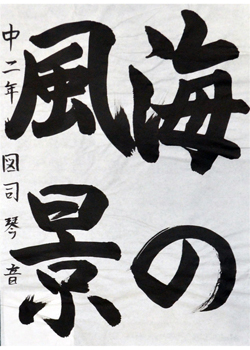 海の
風景
中二年 図司琴音